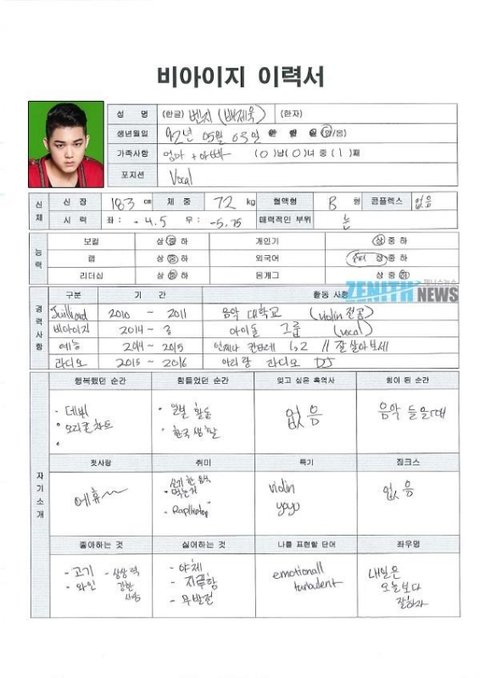 비아이지 이력서
성 명 (한글) 벤지 (배재욱) (한자)
생년월일 92년 05월 03일 (양/음)
가족사항 엄마 + 아빠 (0)남(0)녀 중 (1)째
포지션 Vocal
신체
신 장 183 cm 체 중 72 kg 혈액형 B 형 콤플렉스 없음
시 력 좌 : -4.5 우 : -5.75 매력적인 부위 눈
능력
보컬 상 중 하 개인기 상 중 하
랩 상 중 하 외국어 상 중 하
리더십 상 중 하 몸개그 상 중 하
ZENITH NEWS
경력사항
구분 기 간 활동 사항
Juilliard 2010 - 2011 음악 대학교 (violin 전공)
비아이지 2014 - 현 아이돌 그룹 (vocal)
예능 2014 - 2015 언제나 칸타레 1,2 // 잘 살아보세
라디오 2015 - 2016 아리랑 라디오 DJ
자기소개
행복했던 순간 힘들었던 순간 잊고 싶은 흑역사 힘이 된 순간
- 데뷔 없음 음악 들을때
- 오리콘차트 - 한국 생활
첫사랑 취미 특기 징크스
에휴~ 먹는거 violin 없음
yoyo
좋아하는 것 싫어하는 것 나를 표현할 단어 좌우명
- 고기 - 상상력 - 야채 emotional 내일은
- 와인 강한 사람 - 지루함 turbulent 오늘보다
- 무발전 잘하자